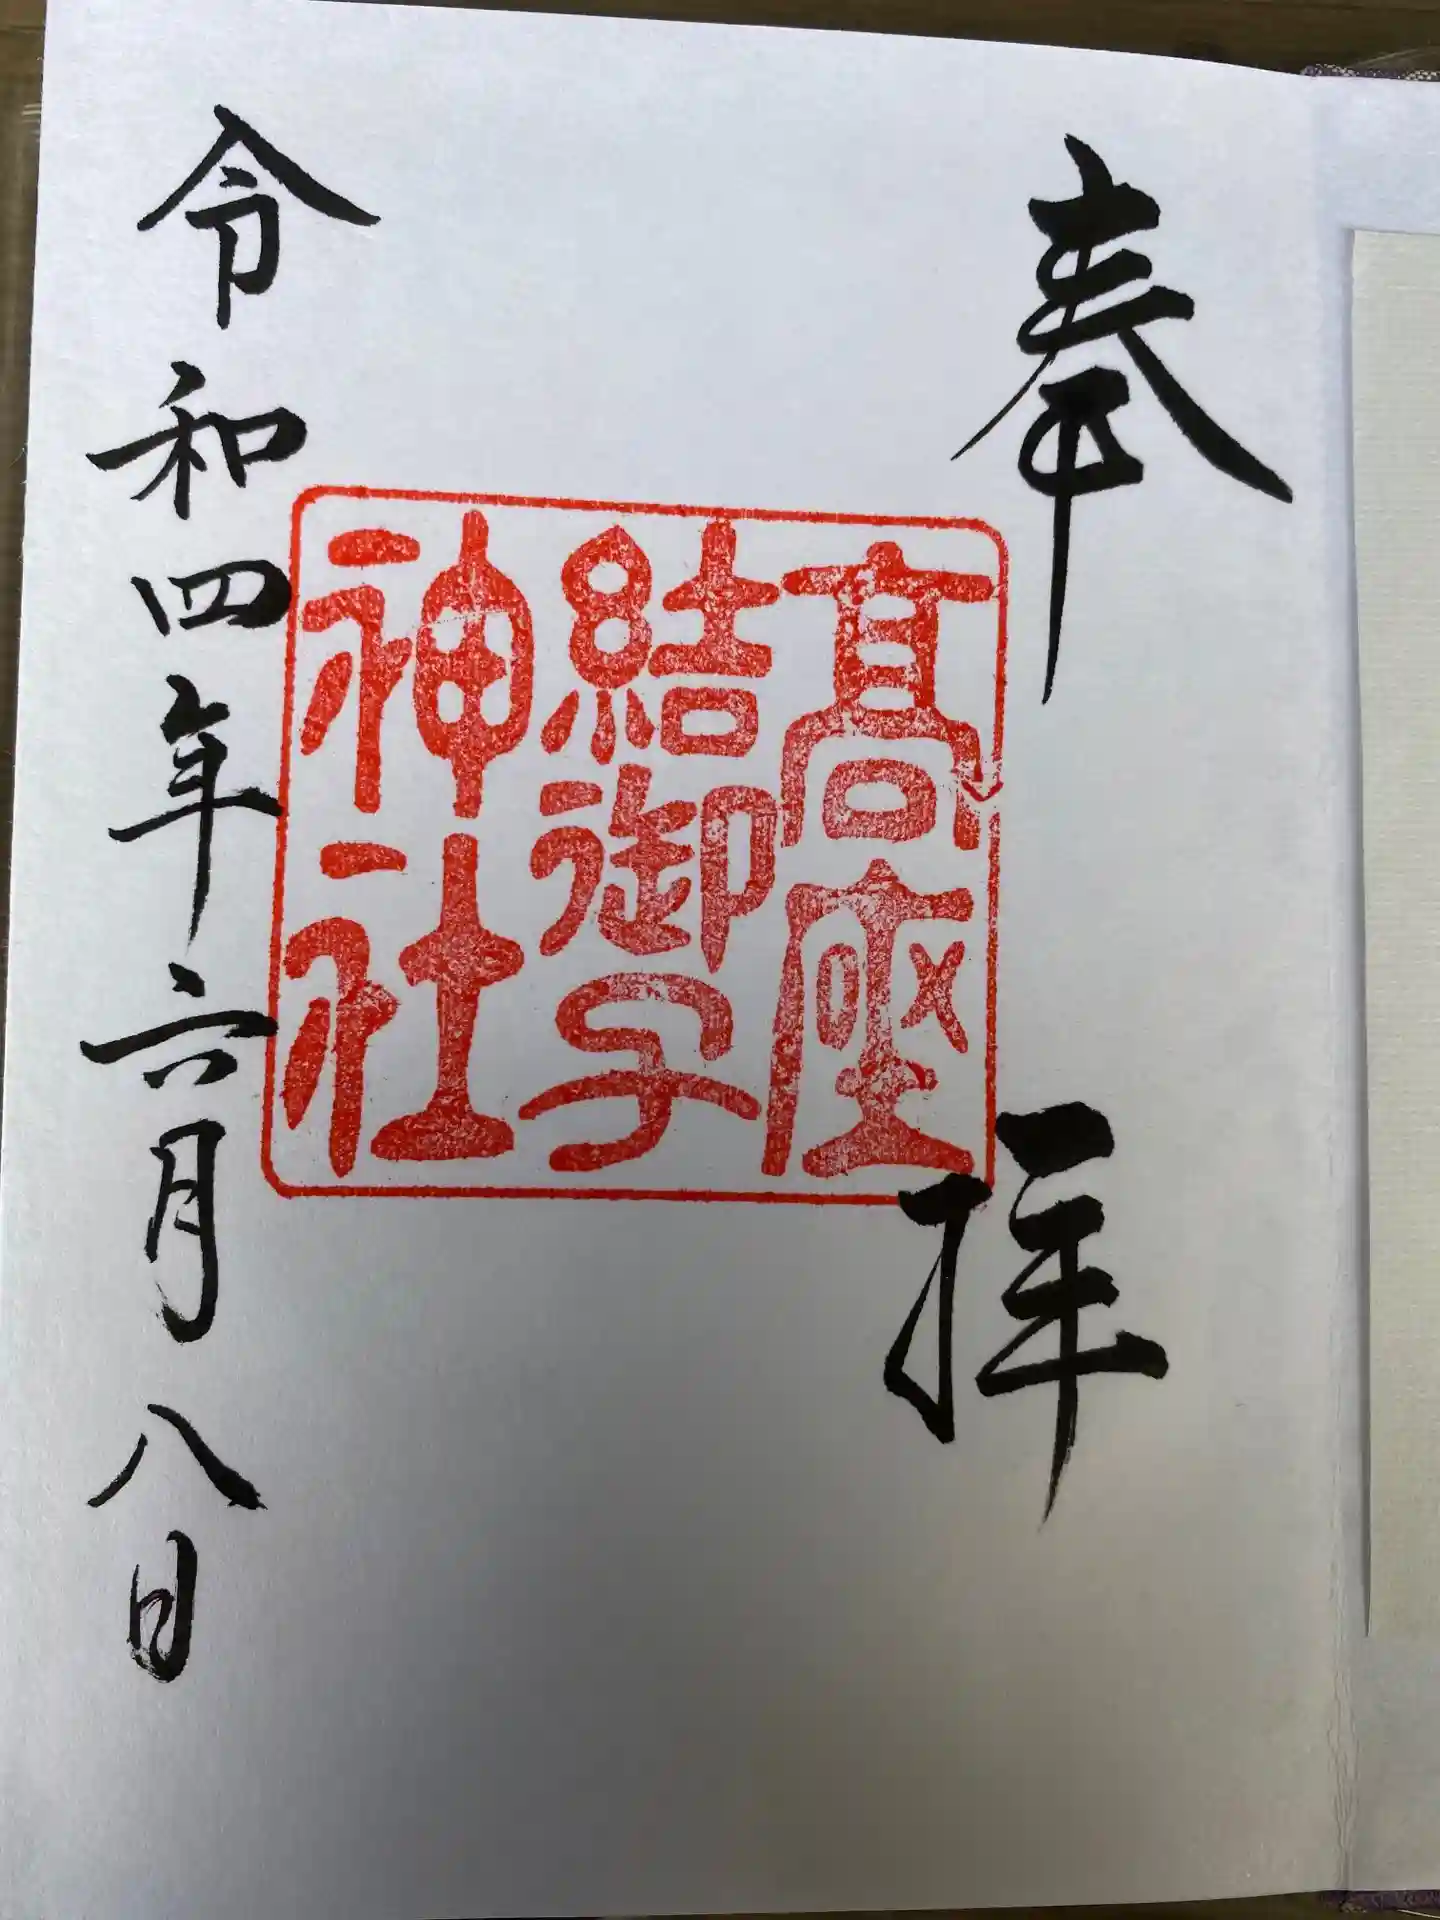 奉拝
髙座
結御子
神社
令和四年六月八日